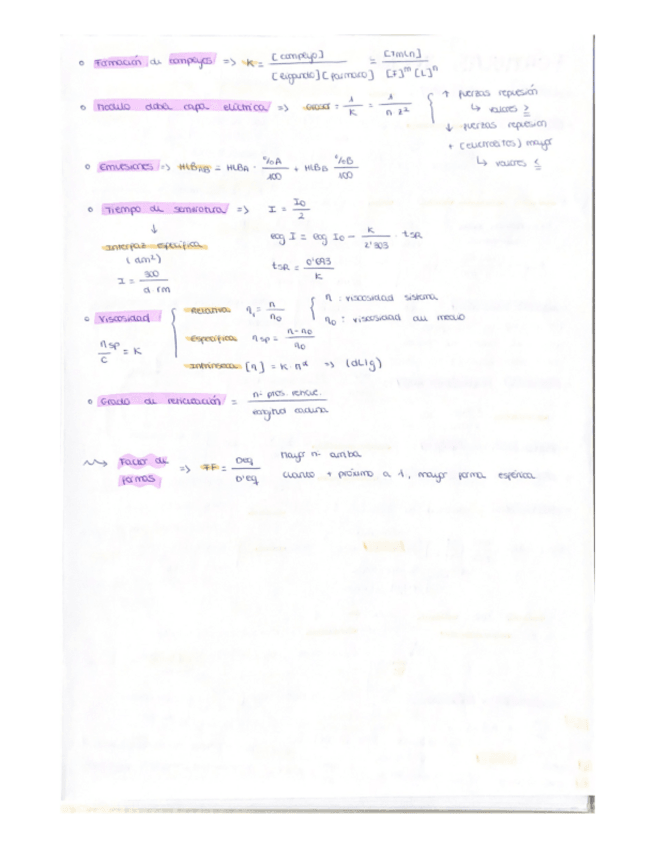 Formación de complejos => K = [complejo] / [ligando][fármaco] = [FmLn] / [F]^m [L]^n
Modelo doble capa eléctrica => = 1/K = 1 / n z² { ↑ fuerzas repulsión
↳ valores ≥
↓ fuerzas repulsión
+ (electrolitos) mayor
↳ valores ≤
Emulsiones => HLB AB = HLBA · %A/100 + HLBB %B/100
Tiempo de semirotura => I = I0/2
↓
Interfaz específica
(dm²)
I = 300 / d rm
log I = log I0 - K/2'303 · tSR
tSR = 0'693 / K
Viscosidad { Relativa η = η/η0 { η : viscosidad sistema
η0 : viscosidad del medio
ηsp / c = K
específica ηsp = η-η0 / η0
intrínseca [η] = K · => (dL/g)
Grado de = nº / longitud
Factor de formas => FF = Deq / D'eq
mayor nº arriba
cuanto + próximo a 1, mayor forma esférica